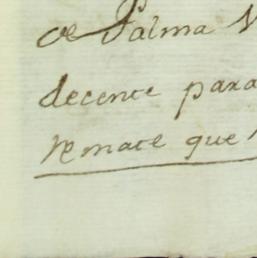 de Palma
decente para
remate que